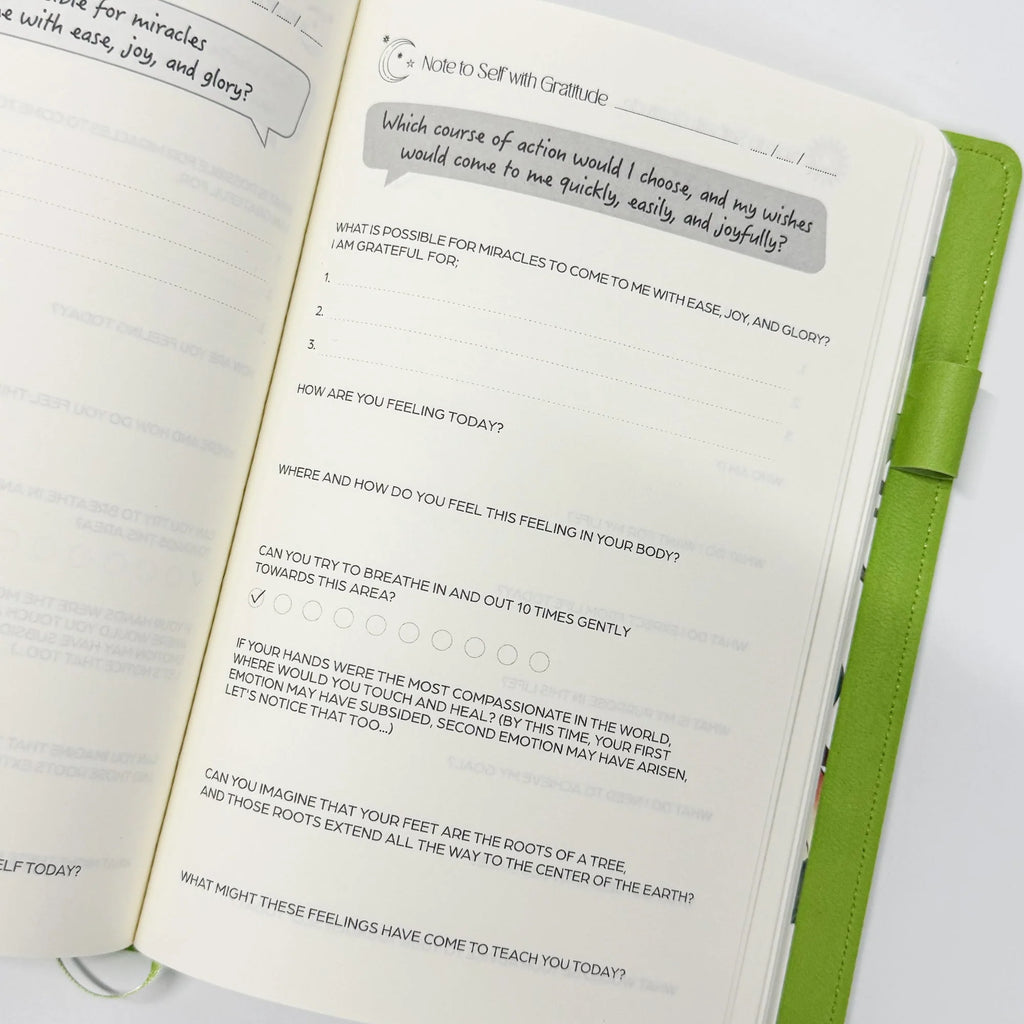 ble for miracles
e with ease, joy, and glory?
ELF TODAY?
Note to Self with Gratitude
Which course of action would I choose, and my wishes
would come to me quickly, easily, and joyfully?
WHAT IS POSSIBLE FOR MIRACLES TO COME TO ME WITH EASE, JOY, AND GLORY?
I AM GRATEFUL FOR;
1.
2.
3.
HOW ARE YOU FEELING TODAY?
WHERE AND HOW DO YOU FEEL THIS FEELING IN YOUR BODY?
CAN YOU TRY TO BREATHE IN AND OUT 10 TIMES GENTLY
TOWARDS THIS AREA?
IF YOUR HANDS WERE THE MOST COMPASSIONATE IN THE WORLD,
WHERE WOULD YOU TOUCH AND HEAL? (BY THIS TIME, YOUR FIRST
EMOTION MAY HAVE SUBSIDED, SECOND EMOTION MAY HAVE ARISEN,
LET'S NOTICE THAT TOO...)
CAN YOU IMAGINE THAT YOUR FEET ARE THE ROOTS OF A TREE,
AND THOSE ROOTS EXTEND ALL THE WAY TO THE CENTER OF THE EARTH?
WHAT MIGHT THESE FEELINGS HAVE COME TO TEACH YOU TODAY?